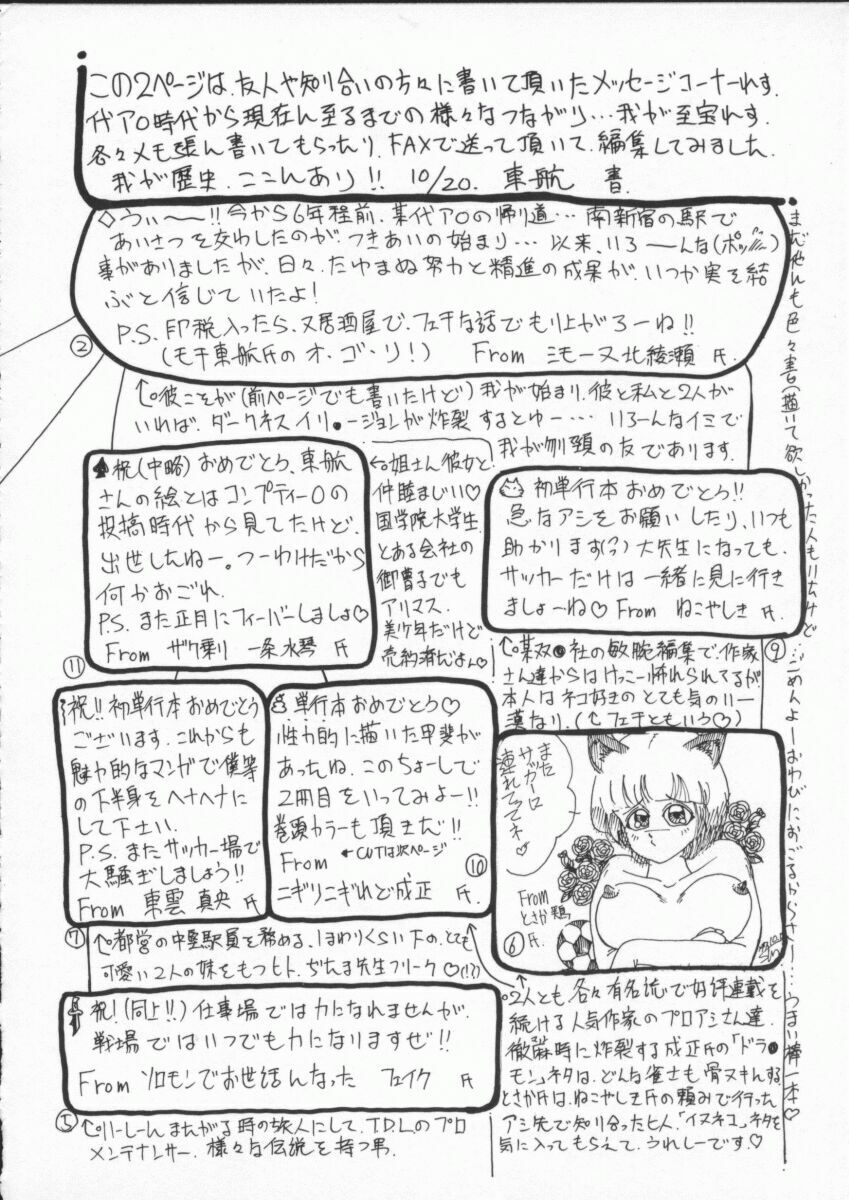 この2ページは、友人や知り合いの方々に書いて頂いたメッセージコーナーれす.
代ア○時代から現在ん至るまでの様々なつながり…我が至宝れす.
各々メモ張ん書いてもらったり、FAXで送って頂いて、編集してみました.
我が歴史、ここんあり!! 10/20. 車航 書.
◇うぃ〜〜!! 今から6年程前、某代ア○の帰り道… 南新宿の駅で
あいさつを交わしたのが、つきあいの始まり… 以来、いろ〜〜んな(ポッ)
事がありましたが、日々、たゆまぬ努力と精進の成果が、いつか実を結
ぶと信じていたよ!
P.S. 印税入ったら、又居酒屋で、フェチな話でもり上がろーね!!
(モチ車航氏のオ・ゴ・リ!) From ミモーヌ北綾瀬 氏.
②
↑彼こそが(前ページでも書いたけど)我が始まり、彼と私と2人が
いれば、ダークネスイリ●ージョンが炸裂するとゆー… いろーんなイミで
我が刎頚の友であります.
♠祝(中略)おめでとう、車航
さんの絵とはコンプティー○の
投稿時代から見てたけど、
出世したねー。つーわけだから
何かおごれ.
P.S. また正月にフィーバーしましょ♡
From ザク乗り 一条水琴 氏
⑪
←姐さん彼女と
仲睦まじい♡
国学院大学生.
とある会社の
御曹子でも
アリマス.
美少年だけど
売約済だよん♡
初単行本おめでとう!!
急なアシをお願いしたり、いつも
助かります(?)大先生になっても、
サッカーだけは一緒に見に行き
ましょーね♡ From ねこやしき 氏.
⑨
↑某双●社の敏腕編集で、作家
さん達からはけっこー怖れられてるが
本人はネコ好きのとても気のいー
漢なり.(↑フェチともいう♡)
祝!! 初単行本おめでとう
ございます. これからも
魅力的なマンガで僕等
の下半身をヘナヘナに
して下さい.
P.S. またサッカー場で
大騒ぎしましょう!!
From 東雲 真央 氏
⑦
単行本おめでとう♡
性力的に描いた甲斐が
あったね. このちょーしで
2冊目をいってみよー!!
巻頭カラーも頂きだ!!
From ←CUTは次ページ
ニギリニギれど成正 氏.
⑩
また
サガーロ
連れててネ♡
From
とさか鶏
氏.
⑥
↑都営の中堅駅員を務める、1まわりくらい下の、とても
可愛い2人の妹をもつヒト. ぢたま先生フリーク♡(!?)
祝!(同上!!)仕事場では力になれませんが、
戦場ではいつでも力になりますぜ!!
From ソロモンでお世話んなった フェイク 氏
⑤
↑りーしーん まんがる時の旅人にして、T.D.Lのプロ
メンテナンサー. 様々な伝説を持つ男.
↑2人とも、各々有名誌で好評連載を
続ける人気作家のプロアシさん達.
徹麻時に炸裂する成正氏の「ドラ●
モン」ネタは、どんな雀士も骨ヌキんする.
とさか氏は、ねこやしき氏の頼みで行った
アシ先で知り合ったヒト.「イヌネコ」ネタを
気に入ってもらえて、うれしーです.♡
まだやんも色々書(描)いて欲しかった人もいたけど…ごめんよーおわびにおごるからさー…うまい棒一本♡